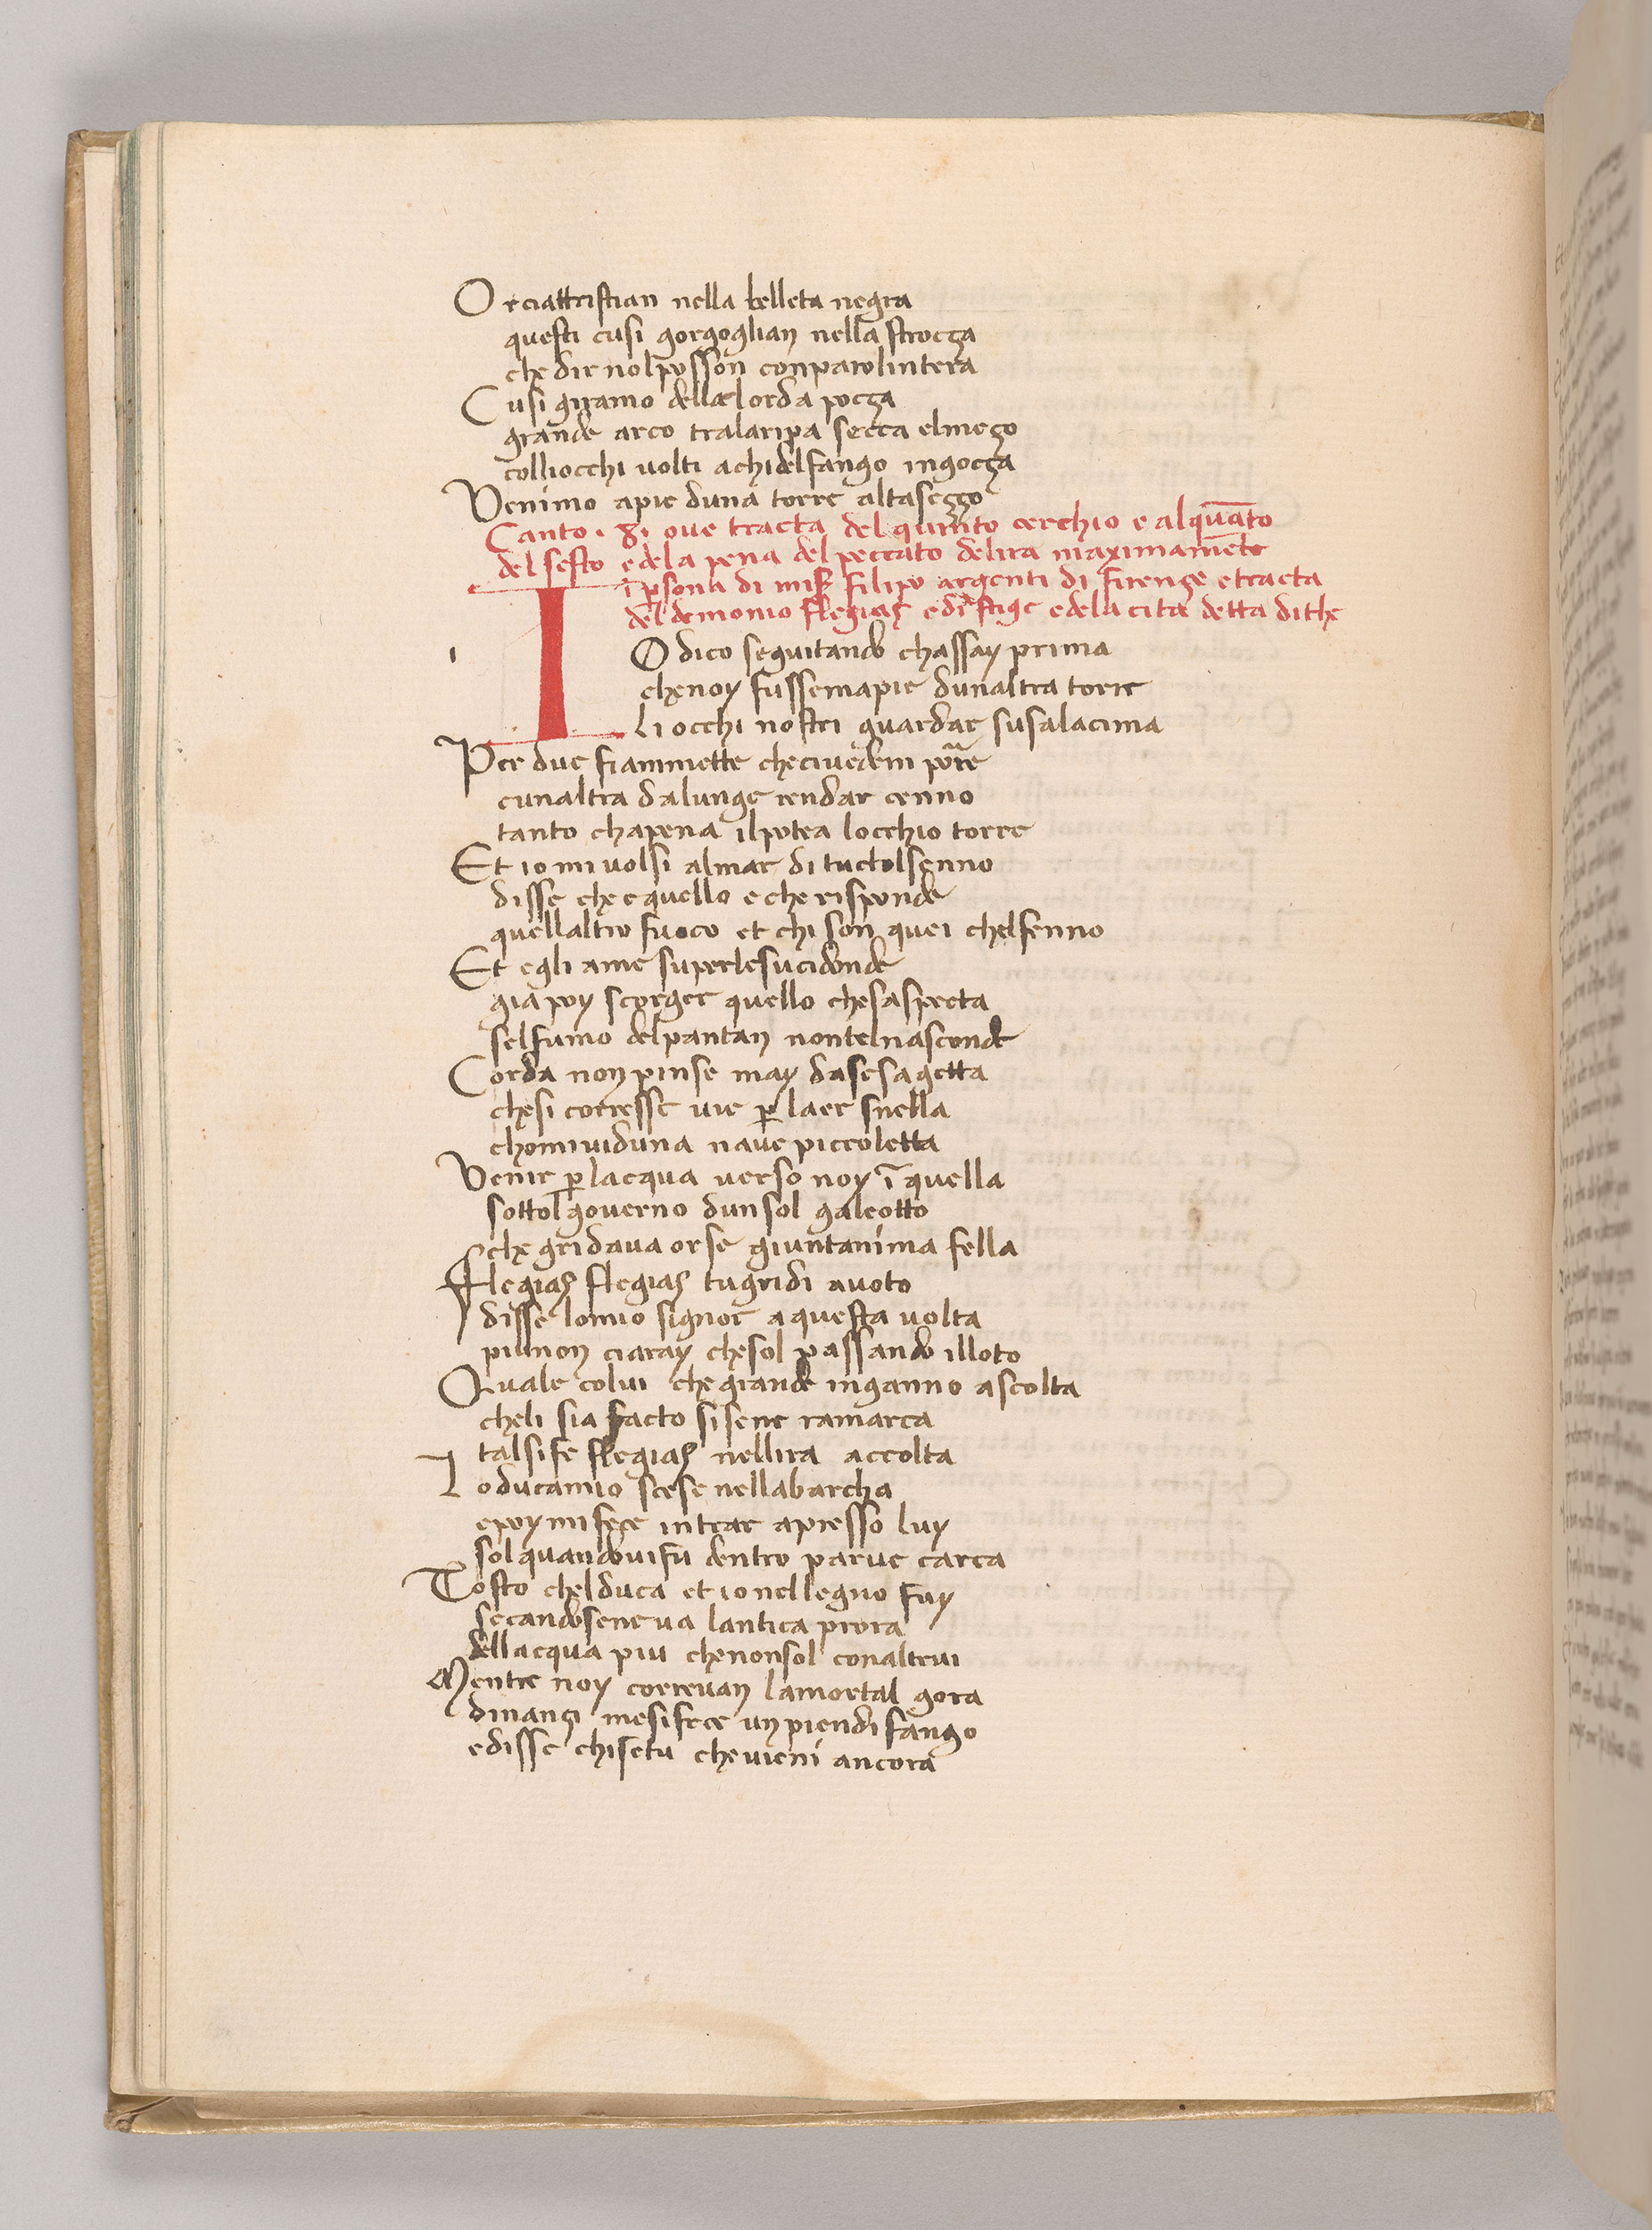 Or ciattristian nella belleta negra
questi cusi gorgoglian nella strocza
che dir nol posson con parolintera
Cusi giramo della lorda pocza
grande arco tralaripa secca elmezo
colliocchi volti achidelfango ingocza
Venimo apie duna torre altasezzo
Canto . 8i ove tracta del quinto cerchio e alquāto
del sesto edela pena del peccato delira maximamēte
ī psona di mis filipo argenti di firenze etracta
del demonio flegias edi stige edela cita detta dithe
I
O dico seguitando chassay prima
che noy fussemapie dunaltra torre
li occhi nostri guardar susalacima
Per due fiammette checivedem porre
cunaltra dalunge rendar cenno
tanto chapena ilpotea locchio torre
Et io mi volsi almar di tuctolsenno
disse che e quello e che risponde
quellaltro fuoco et chi son quei chelfenno
Et egli ame superlesucidonde
gia poy scorger quello chesaspecta
selfumo delpantan nontelnasconde
Corda non pinse may dasesagetta
chesi corresse vie p laer snella
chomividuna nave piccoletta
Venir p lacqua verso noy ī quella
sottol governo dun sol galeotto
che gridava orse giuntanima fella
Flegias flegias tugridi avoto
disse lomio signor a questa volta
piunon ciaray chesol passando illoto
Quale colui che grande inganno ascolta
cheli sia facto sisene ramarca
talsife flegias nellira accolta
Lo ducamio scese nellabarcha
epoy mi fece intrar apresso luy
sol quandovifu dentro parve carca
Tosto chelduca et io nel legno fuy
secandosene va lantica prora
dellacqua piu chenonsol conaltrui
Mentre noy correvan lamortal gora
dinanzi mesifece un piendi fango
edisse chisetu chevieni ancora